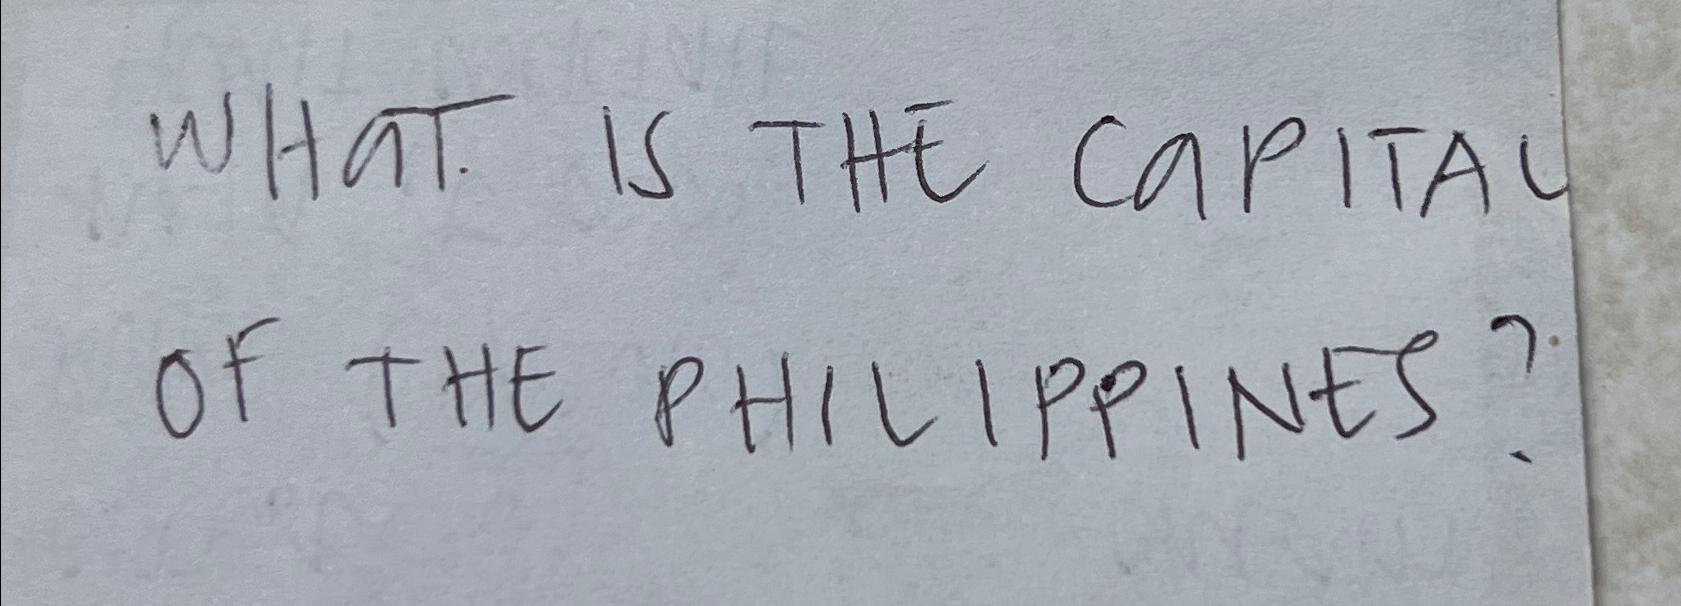 WHAT IS THE CAPITAL
OF THE PHILIPPINES?